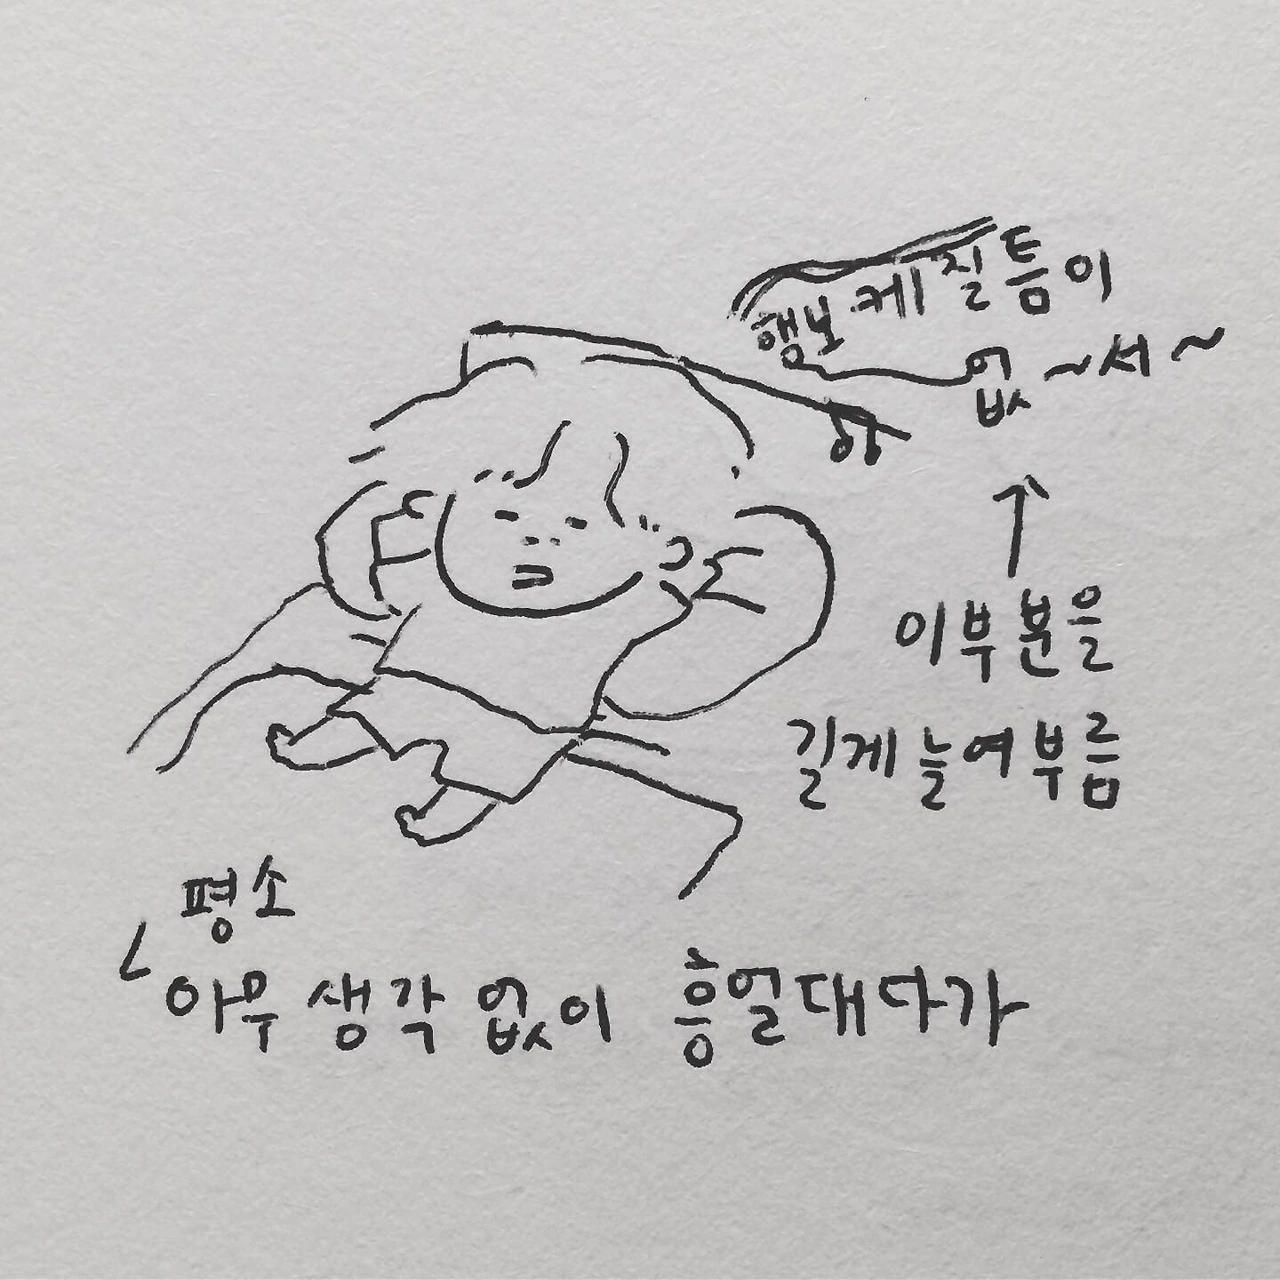 행보케질틈이
없~서~
이부분을
길게늘여부름
평소
아무생각없이 흥얼대다가